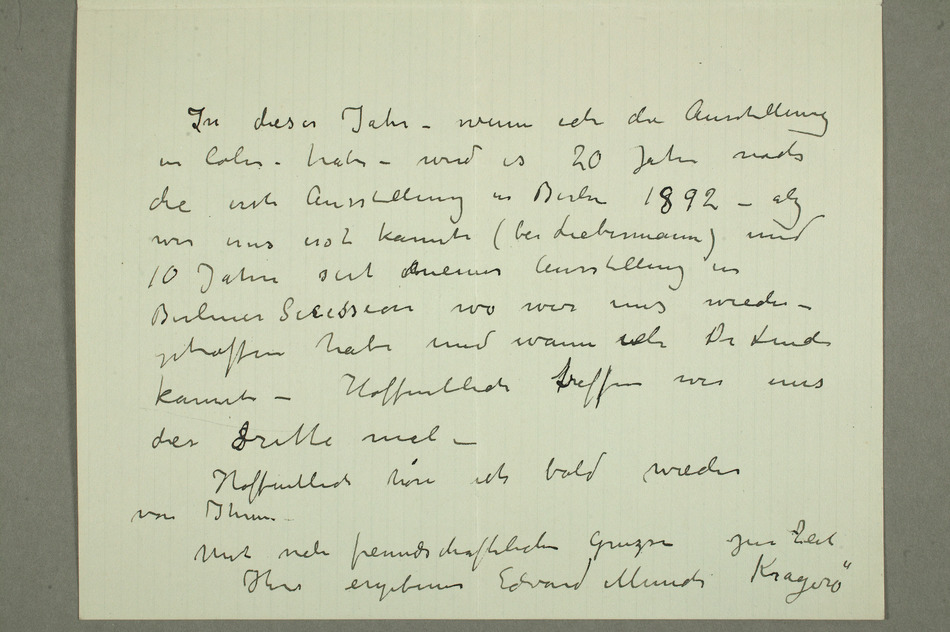 In dieser Jahr – wenn ich die Ausstellung
in Cöln – habe – wird es 20 Jahre nach
die erste Ausstellung in Berlin 1892 – als
wir uns erst kannte (bei Liebermann) und
10 Jahre seit meiner Ausstellung in
Berliner Secession wo wir uns wieder-
getroffen habe und wann ich Dr Linde
kannte – Hoffentlich treffen wir uns
der dritte mal –
Hoffentlich höre ich bald wieder
von Ihnen –
Mit viele freundschaftlichen Gruzse zur Zeit
Ihr ergebener Edvard Munch Kragerö"